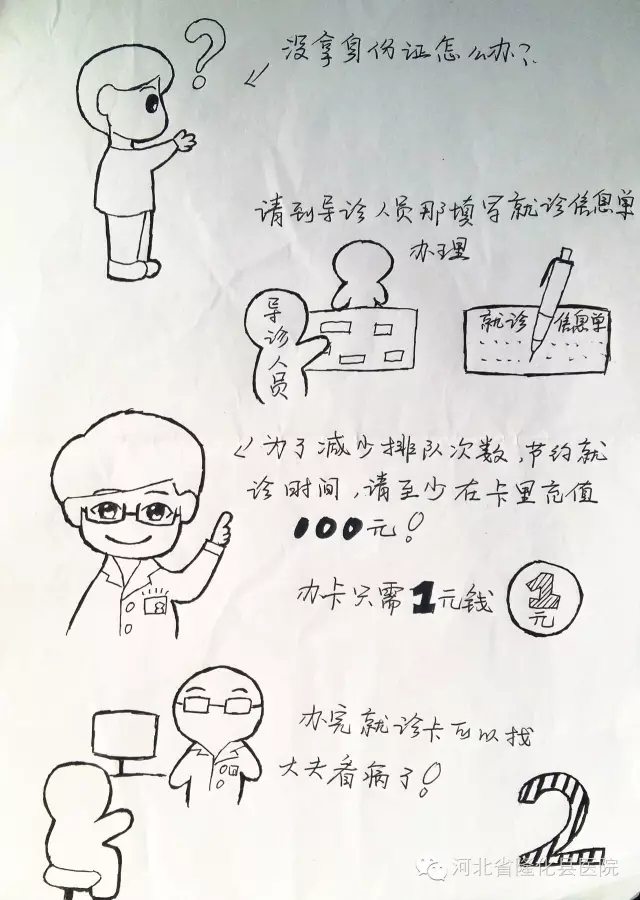 没拿身份证怎么办？
请到导诊人员那填写就诊信息单
办理
导诊人员
就诊 信息单
为了减少排队次数，节约就
诊时间，请至少在卡里充值
100元！
办卡只需1元钱
1元
办完就诊卡可以找
大夫看病了！
2
河北省隆化县医院